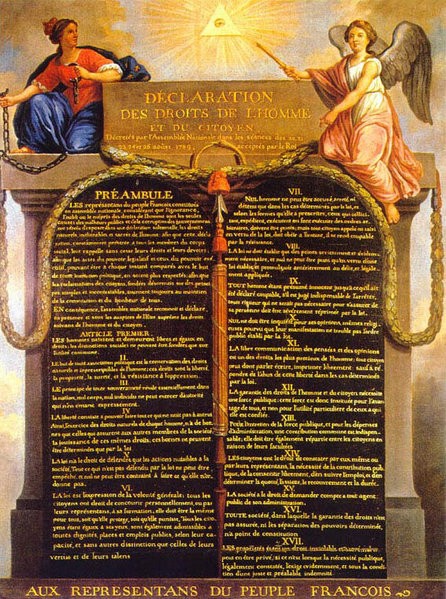 DÉCLARATION
DES DROITS DE L'HOMME
ET DU CITOYEN,
Décrétés par l'Assemblée Nationale dans les séances des 20, 21
23, 24 et 26 août 1789, acceptés par le Roi
PRÉAMBULE
LES représentans du peuple François, constitués
en assemblée nationale, considérant que l'ignorance,
l'oubli ou le mépris des droits de l'homme sont les seules
causes des malheurs publics et de la corruption des gouvernemens
ont résolu d'exposer dans une déclaration solemnelle, les droits
naturels, inaliénables et sacrés de l'homme; afin que cette décla-
ration, constamment présente à tous les membres du corps
social, leur rappelle sans cesse leurs droits et leurs devoirs;
afin que les actes du pouvoir législatif et ceux du pouvoir exé-
cutif, pouvant être à chaque instant comparés avec le but
de toute institution politique, en soient plus respectés; afin que
les réclamations des citoyens, fondées désormais sur des princi-
pes simples et incontestables, tournent toujours au maintien
de la constitution et du bonheur de tous.
EN conséquence, l'assemblée nationale reconnoit et déclare,
en présence et sous les auspices de l'Etre suprême les droits
suivans de l'homme et du citoyen.
ARTICLE PREMIER.
LES hommes naissent et demeurent libres et égaux en
droits; les distinctions sociales ne peuvent être fondées que sur
l'utilité commune.
II.
LE but de toute association politique est la conservation des droits
naturels et imprescriptibles de l'homme; ces droits sont la liberté,
la propriété, la sureté, et la résistance à l'oppression.
III.
LE principe de toute souveraineté réside essentiellement dans
la nation, nul corps, nul individu ne peut exercer d'autorité
qui n'en émane expressément.
IV.
LA liberté consiste à pouvoir faire tout ce qui ne nuit pas à autrui
Ainsi, l'exercice des droits naturels de chaque homme, n'a de bor-
nes que celles qui assurent aux autres membres de la société
la jouissance de ces mêmes droits; ces bornes ne peuvent
être déterminées que par la loi.
V.
LA loi n'a le droit de défendre que les actions nuisibles à la
société. Tout ce qui n'est pas défendu par la loi ne peut être
empêché, et nul ne peut être contraint à faire ce qu'elle n'or-
donne pas.
VI.
LA loi est l'expression de la volonté générale; tous les
citoyens ont droit de concourir personnellement, ou par
leurs représentans, à sa formation; elle doit être la même
pour tous, soit qu'elle protege, soit qu'elle punisse. Tous les ci-
toyens étant égaux à ses yeux, sont également admissibles à
toutes dignités, places et emplois publics, selon leur ca-
pacité, et sans autres distinction que celles de leurs
vertus et de leurs talens
VII.
NUL homme ne peut être accusé, arrêté, ni
détenu que dans les cas déterminés par la loi, et
selon les formes qu'elle a prescrites, ceux qui sollici-
tent, expédient, exécutent ou font exécuter des ordres ar-
bitraires, doivent être punis; mais tout citoyen appelé ou saisi
en vertu de la loi, doit obéir à l'instant, il se rend coupable
par la résistance.
VIII.
LA loi ne doit établir que des peines strictement et évidem-
ment nécessaires, et nul ne peut être puni qu'en vertu d'une
loi établie et promulguée antérieurement au délit, et légale-
ment appliquée.
IX.
TOUT homme étant présumé innocent jusqu'à ce qu'il ait
été déclaré coupable, s'il est jugé indispensable de l'arrêter,
toute rigueur qui ne serait pas nécessaire pour s'assurer de
sa personne doit être sévèrement réprimée par la loi.
X.
NUL ne doit être inquiété pour ses opinions, mêmes religi-
euses pourvu que leur manifestation ne trouble pas l'ordre
public établi par la loi.
XI.
LA libre communication des pensées et des opinions
est un des droits les plus précieux de l'homme; tout citoyen
peut donc parler, écrire, imprimer librement, sauf à ré-
pondre de l'abus de cette liberté dans les cas déterminés
par la loi.
XII.
LA garantie des droits de l'homme et du citoyen nécessite
une force publique; cette force est donc instituée pour l'avan-
tage de tous, et non pour l'utilité particuliere de ceux à qui
elle est confiée.
XIII.
POUR l'entretien de la force publique, et pour les dépenses
d'administration, une contribution commune est indispen-
sable; elle doit être également répartie entre les citoyens en
raison de leurs facultés.
XIV.
LES citoyens ont le droit de constater par eux même ou
par leurs représentans, la nécessité de la contribution pub-
lique, de la consentir librement, d'en suivre l'emploi, et d'en
déterminer la quotité, l'assiette, le recouvrement et la durée.
XV.
LA société a le droit de demander compte à tout agent
public de son administration.
XVI.
TOUTE société, dans laquelle la garantie des droits n'est
pas assurée, ni les séparation des pouvoirs déterminée,
n'a point de constitution.
XVII.
LES propriétés étant un droit inviolable et sacré, nul ne
peut en être privé, si ce n'est lorsque la nécessité publique,
légalement constatée, l'exige évidemment, et sous la condi-
tion d'une juste et préalable indemnité.
AUX REPRESENTANS DU PEUPLE FRANCOIS